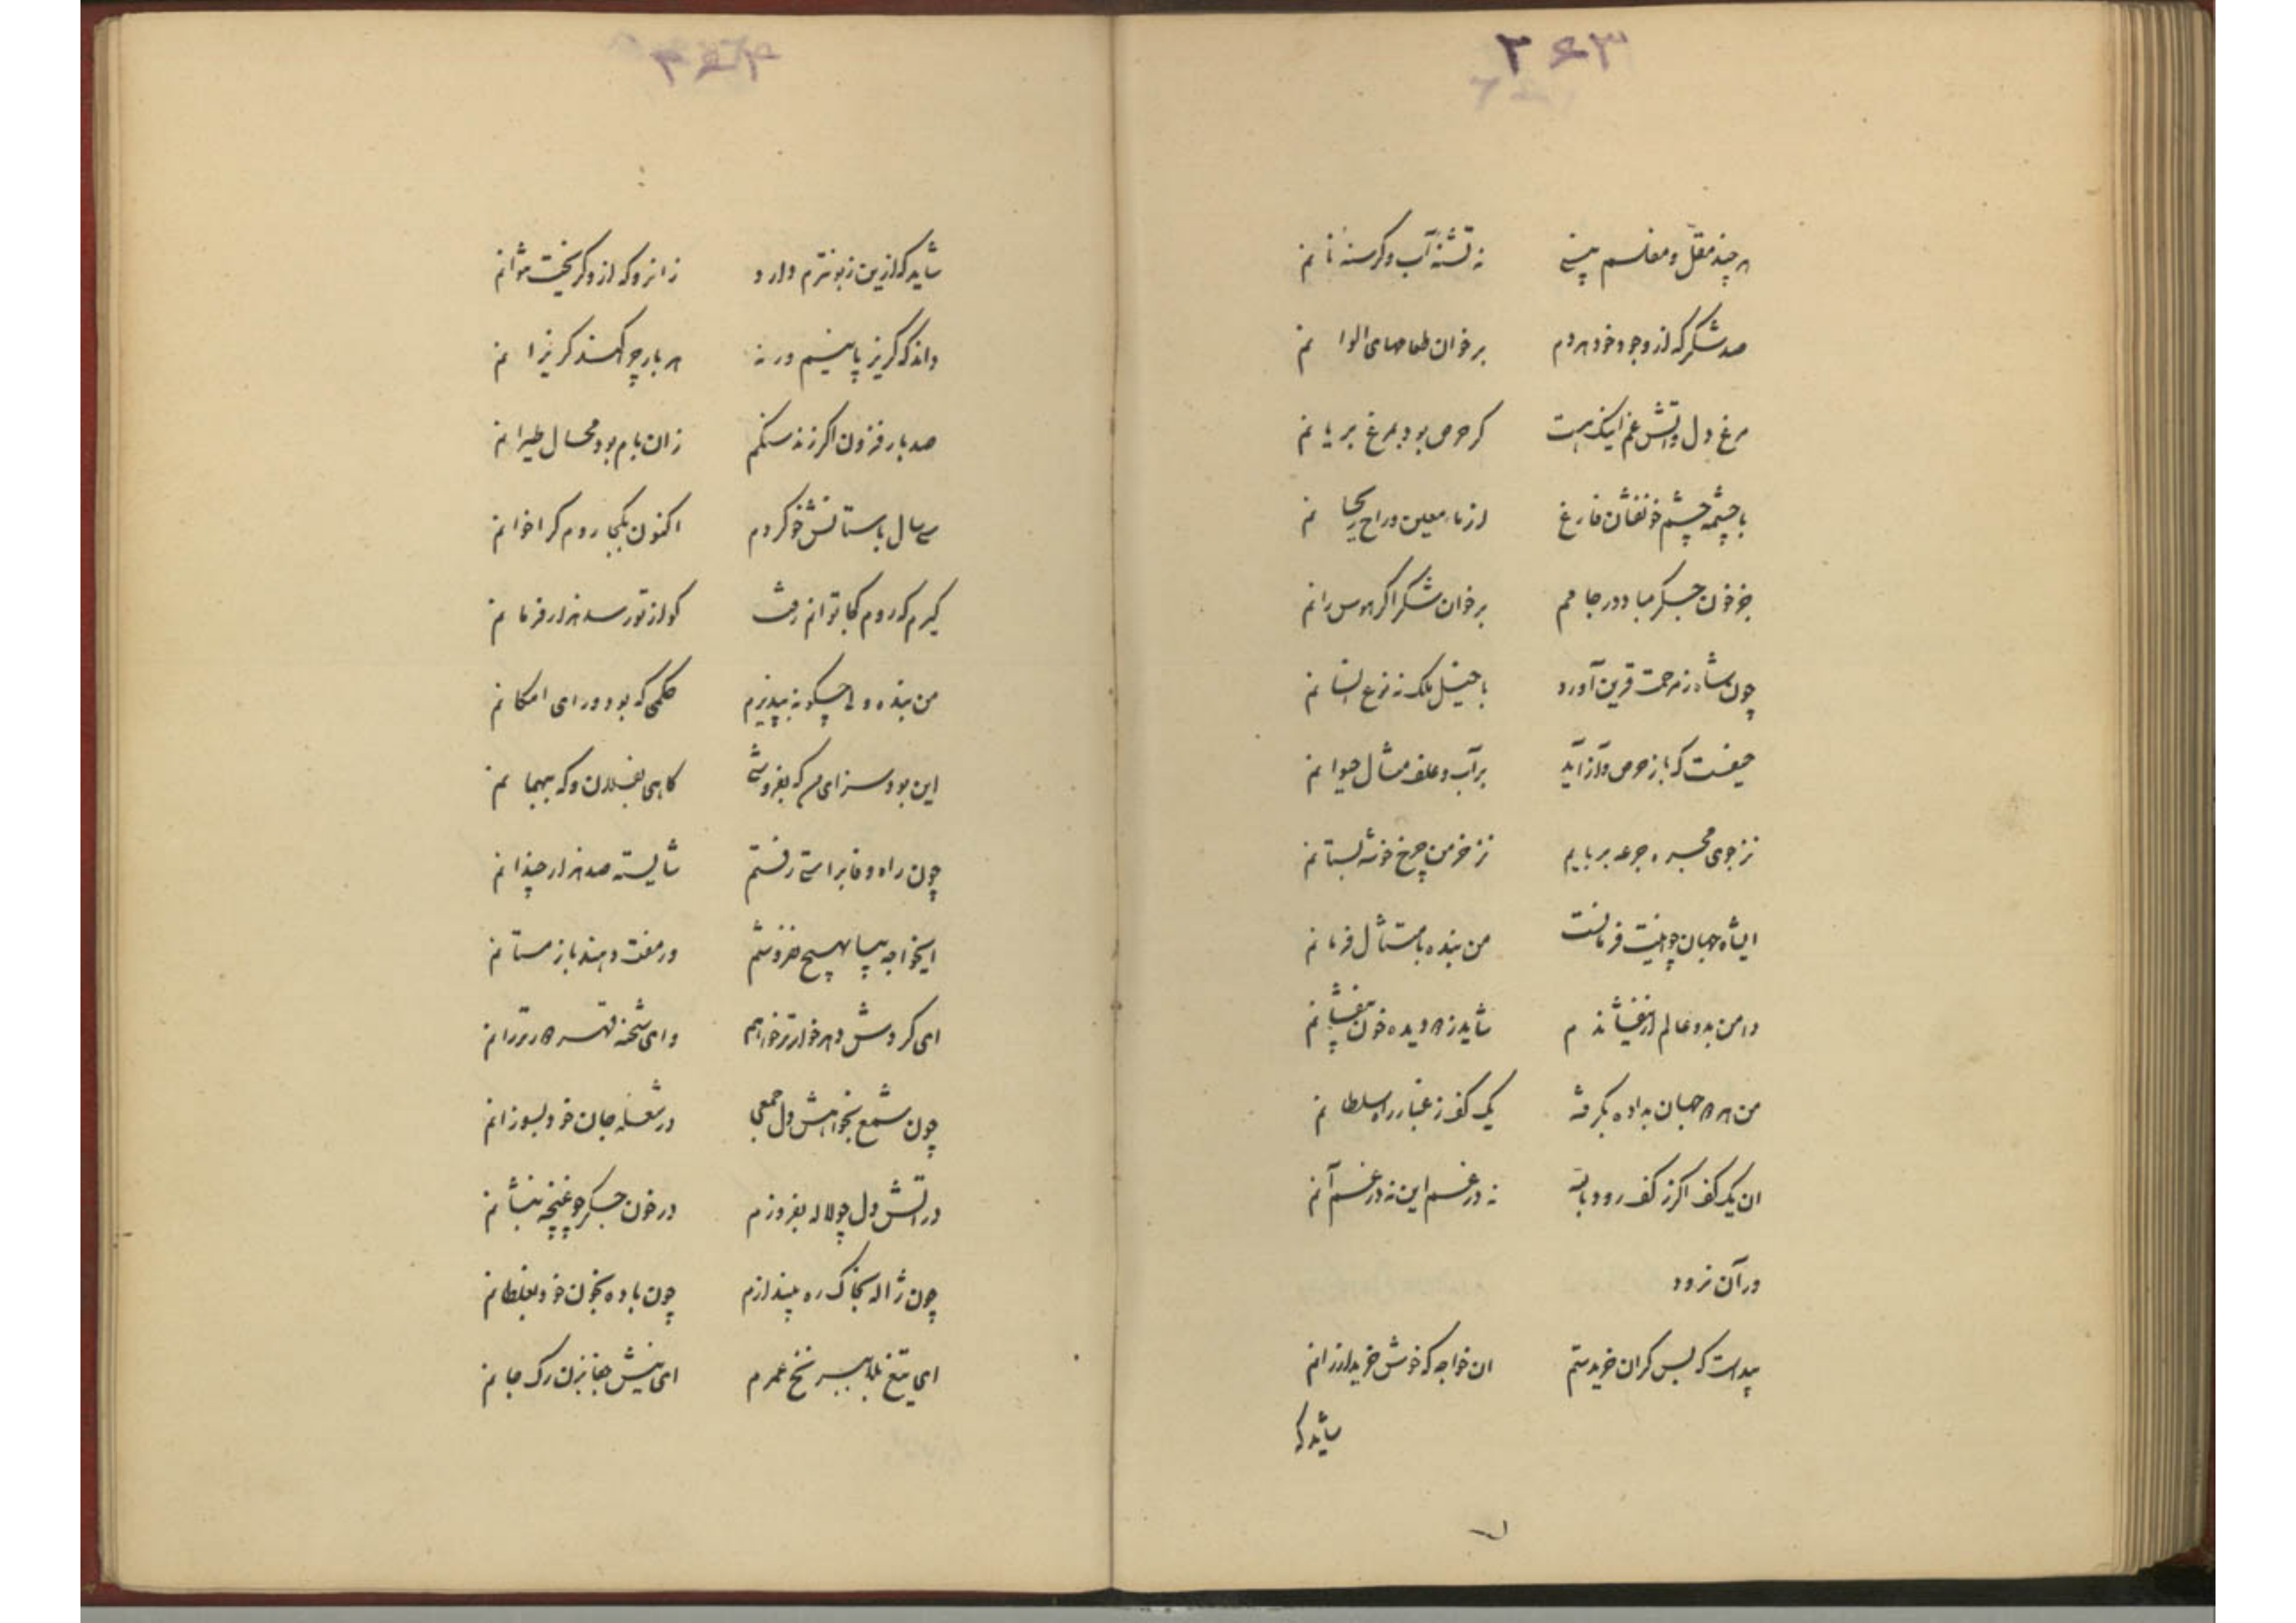 ۲۶۳
هر چند مقل و مفلسم بینی نه تشنهٔ آب و گرسنه نانم
صد شکر که از وجود خود هر دم بر خوان طعامهای الوانم
مرغ دل و آتش غم اینک هست گر حرص بود بمرغ بریانم
با چشمه چشم خونفشان فارغ از ماء معین و راح ریحانم
جز خون جگر مباد در جامم بر خوان شکر اگر هوس رانم
چون شاه ز مرحمت قرین آورد با خیل ملک نه نوع انسانم
حیفست که باز حرص و آز آید بر آب و علف مثال حیوانم
نز جوی مجره جرعه بربایم نز خرمن چرخ خوشه بستانم
ایشاه جهان چو نیت فرمانست من بنده بامتثال فرمانم
دامن بدو عالم ار نیفشاندم شاید ز دو دیده خون بیفشانم
من هر دو جهان بداده بگرفته یک کف ز غبار راه سلطانم
ان یک کف اگر ز کف رود یا نه نه در غم این نه در غم آنم
ور آن نرود
پیداست که بس گران خریدستم ان خواجه که خوش خرید ارزانم
شاید که
۲۶۴
شاید که ازین زبونترم دارد زانرو که ازو گریخت نتوانم
داند که گریز پا نیم ور نه هر بار چرا کند گریزانم
صد بار فزون اگر زند سنگم زان بام بود محال طیرانم
سی سال باستانش خو کردم اکنون بکجا روم کرا خوانم
گیرم که روم کجا توانم رفت کو از تو رسد هزار فرمانم
من بنده ولی چگونه بپذیرم حکمی که بود ورای امکانم
این بود سزای من که بفروشی گاهی بفلان و گه ببهمانم
چون راه وفا براستی رفتم شایسته صد هزار چندانم
ایخواجه بیا بهیچ بفروشم ور مفت دهند باز مستانم
ای گردش دهر خوارتر خواهم وای شحنه قهر دورتر رانم
چون شمع بخواهش دل جمعی در شعله جان خود بسوزانم
در آتش دل چو لاله بفروزم در خون جگر چو غنچه بنشانم
چون ژاله بخاک ره بیندازم چون باده بخون خود بغلطانم
ای تیغ بلا ببر نخ عمرم ای نیش جفا بزن رگ جانم